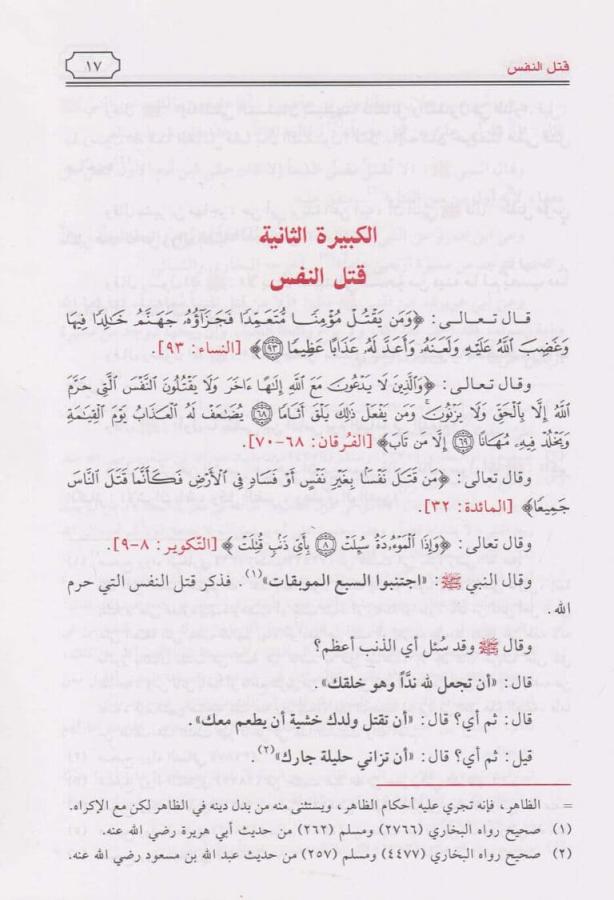 قتل النفس
١٧
الكبيرة الثانية
قتل النفس
قال تعالى: ﴿وَمَن يَقْتُلْ مُؤْمِنًا مُّتَعَمِّدًا فَجَزَآؤُهُ جَهَنَّمُ خَالِدًا فِيهَا
وَغَضِبَ اللَّهُ عَلَيْهِ وَلَعَنَهُ وَأَعَدَّ لَهُ عَذَابًا عَظِيمًا ﴿٩٣﴾﴾ [النساء: ٩٣].
وقال تعالى: ﴿وَالَّذِينَ لَا يَدْعُونَ مَعَ اللَّهِ إِلَٰهًا ءَاخَرَ وَلَا يَقْتُلُونَ النَّفْسَ الَّتِي حَرَّمَ
اللَّهُ إِلَّا بِالْحَقِّ وَلَا يَزْنُونَ ۚ وَمَن يَفْعَلْ ذَٰلِكَ يَلْقَ أَثَامًا ﴿٦٨﴾ يُضَاعَفْ لَهُ الْعَذَابُ يَوْمَ الْقِيَامَةِ
وَيَخْلُدْ فِيهِ مُهَانًا ﴿٦٩﴾ إِلَّا مَن تَابَ﴾ [الفرقان: ٦٨-٧٠].
وقال تعالى: ﴿مَن قَتَلَ نَفْسًا بِغَيْرِ نَفْسٍ أَوْ فَسَادٍ فِي الْأَرْضِ فَكَأَنَّمَا قَتَلَ النَّاسَ
جَمِيعًا﴾ [المائدة: ٣٢].
وقال تعالى: ﴿وَإِذَا الْمَوْءُدَةُ سُئِلَتْ ﴿٨﴾ بِأَيِّ ذَنبٍ قُتِلَتْ﴾ [التكوير: ٨-٩].
وقال النبي ﷺ: «اجتنبوا السبع الموبقات»(١). فذكر قتل النفس التي حرم
الله.
وقال ﷺ وقد سئل أي الذنب أعظم؟
قال: «أن تجعل لله ندًّا وهو خلقك».
قال: ثم أي؟ قال: «أن تقتل ولدك خشية أن يطعم معك».
قيل: ثم أي؟ قال: «أن تزاني حليلة جارك»(٢)
= الظاهر، فإنه تجري عليه أحكام الظاهر، ويستثنى منه من بدل دينه في الظاهر لكن مع الإكراه.
(١) صحيح رواه البخاري (٢٧٦٦) ومسلم (٢٦٢) من حديث أبي هريرة رضي الله عنه.
(٢) صحيح رواه البخاري (٤٤٧٧) ومسلم (٢٥٧) من حديث عبد الله بن مسعود رضي الله عنه.